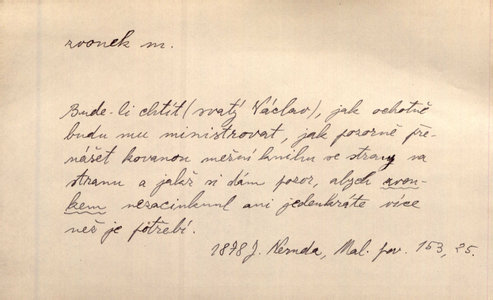 zvonek m.
Bude-li chtít (svatý Václav), jak ochotně
budu mu ministrovat, jak pozorně pře-
nášet kovanou mešní knihu ze strany na
stranu a jakž si dám pozor, abych zvon-
kem nezacinknul ani jedenkráte více
než je potřebí.
1878 J. Neruda, Mal. pov. 153, 25.